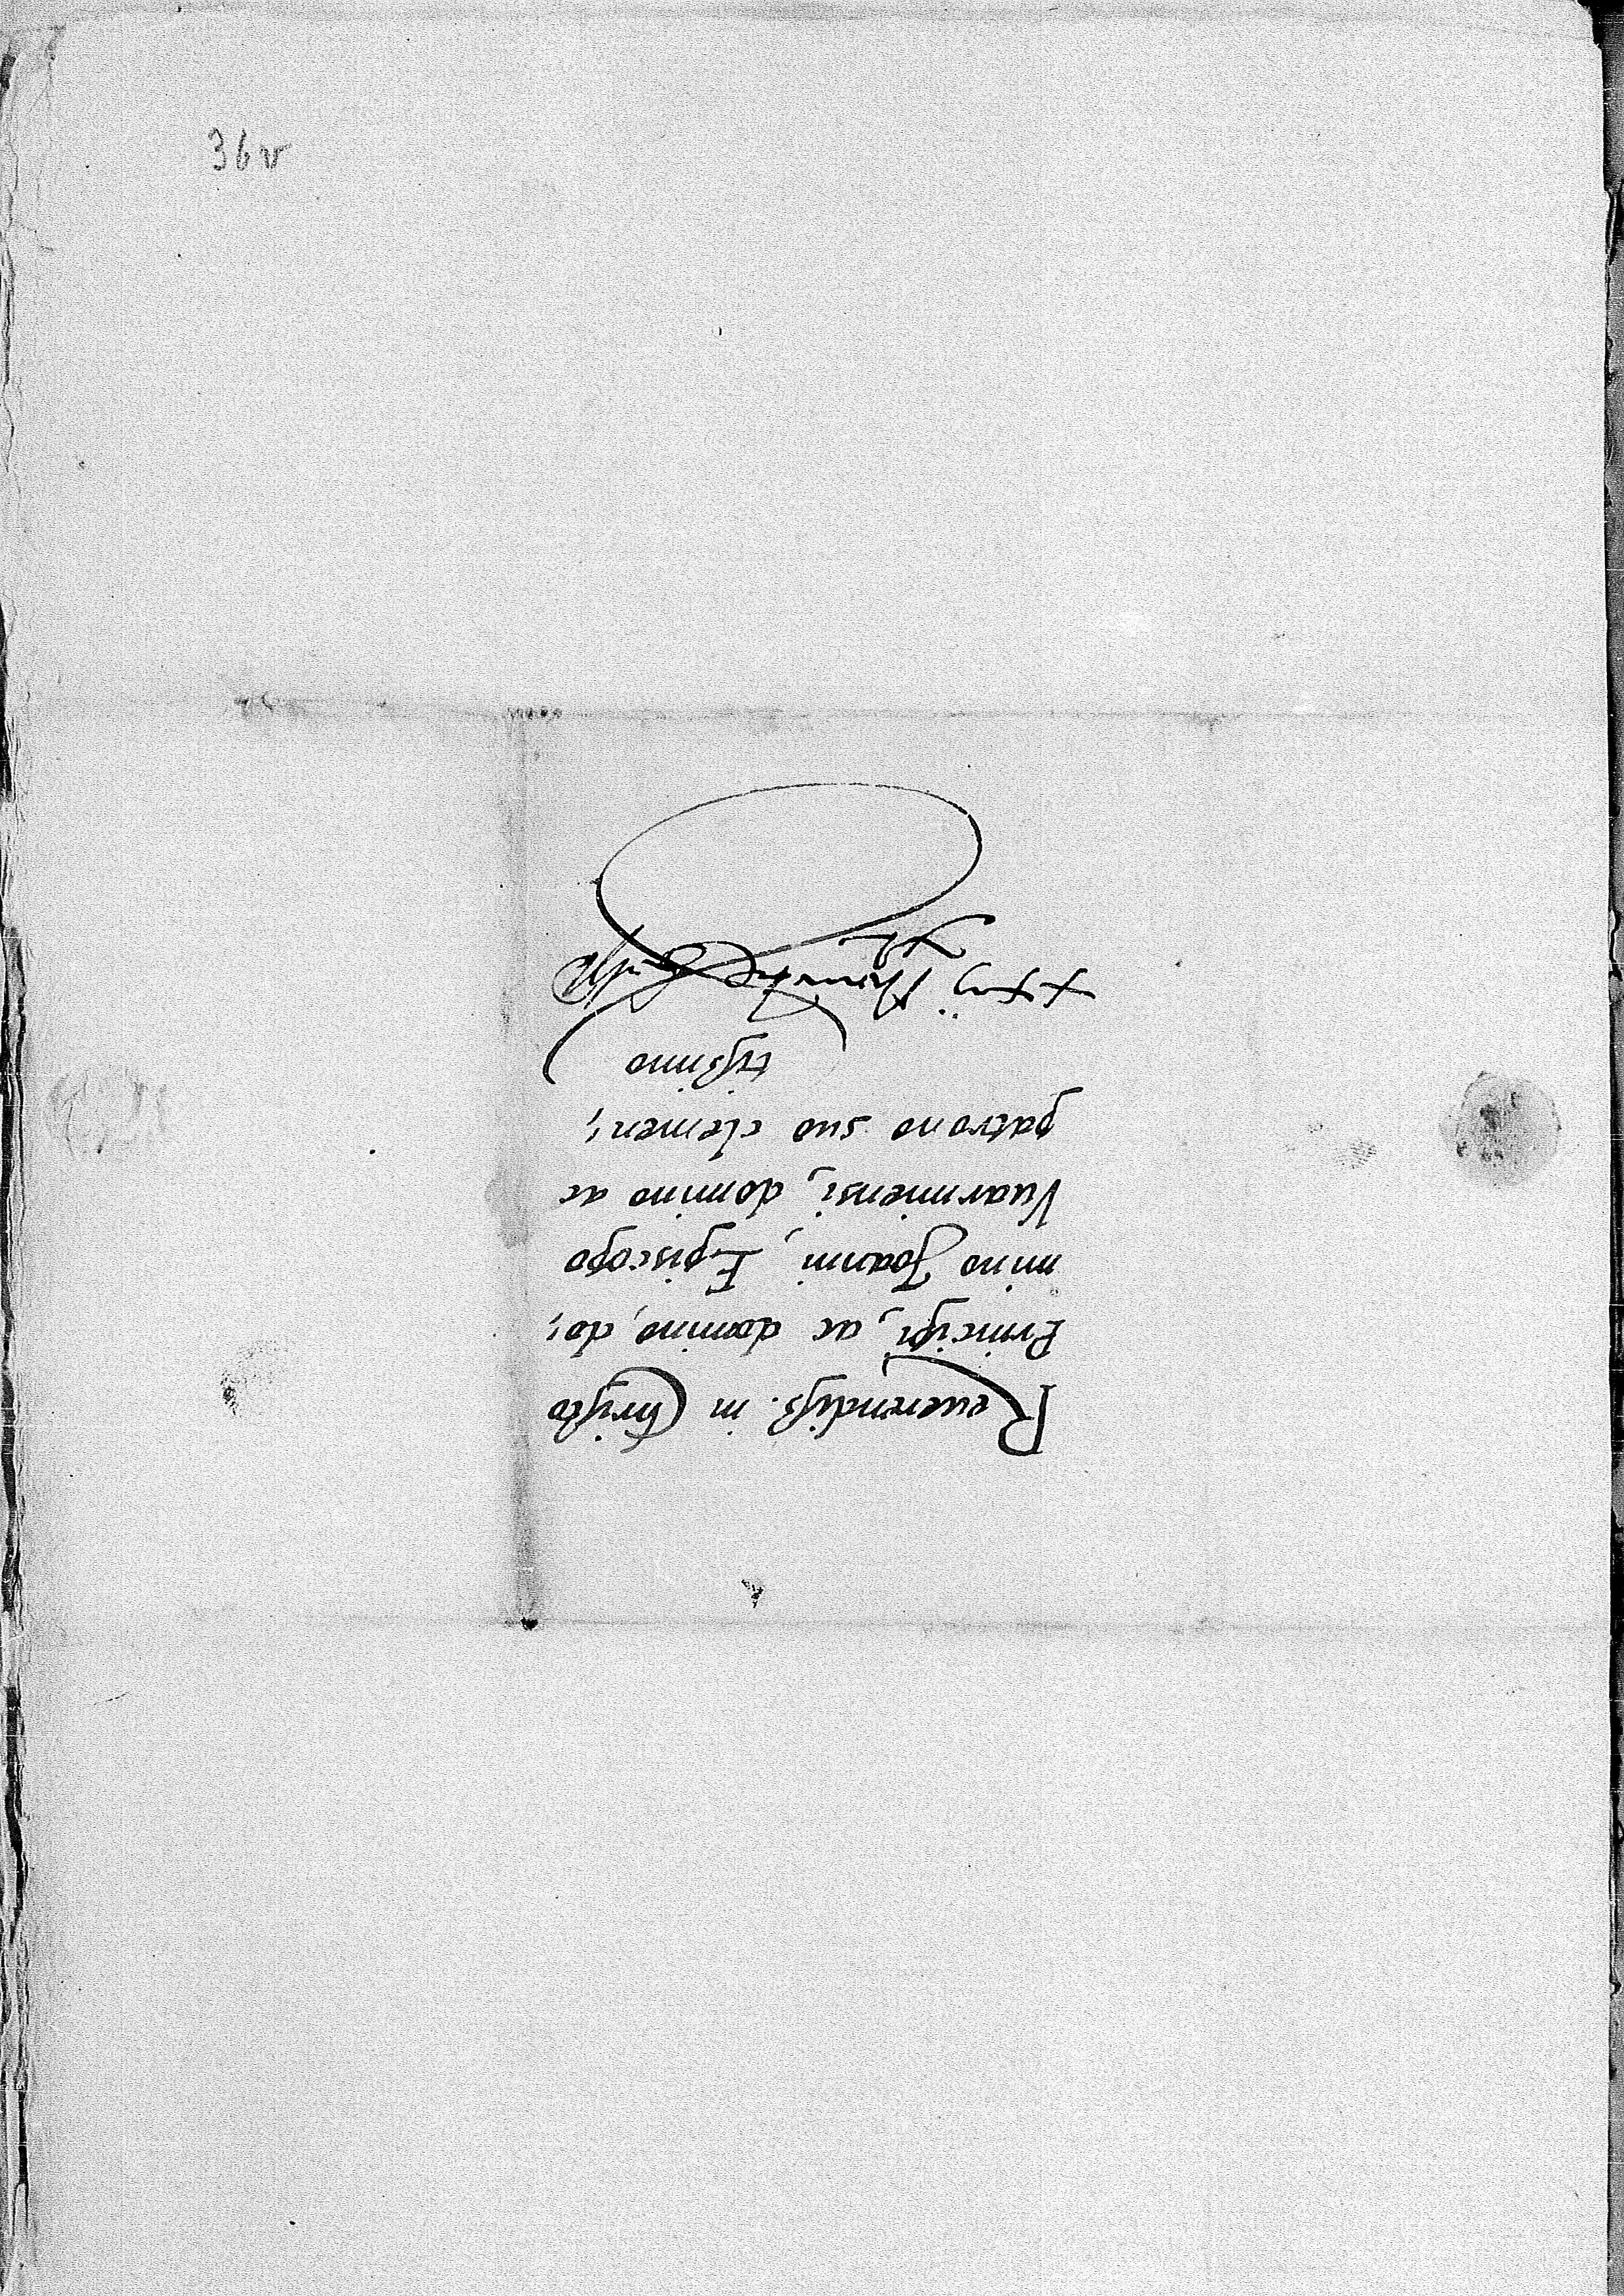 36v
Reuerendiß. in Christo
Principi, ac domino, do,
mino Joanni, Episcopo
Vuarmiensi, domino ac
patrono suo clemen,
tyßimo